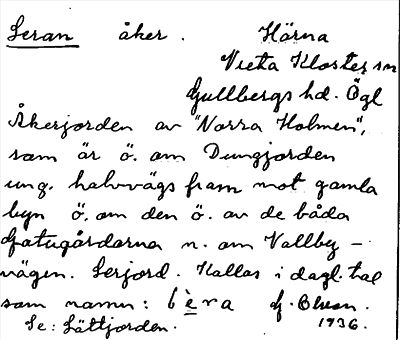 Leran åker. Härna
Vreta Kloster sn
Gullbergs hd. Ögl
Åkerjorden av "Norra Holmen",
som är ö. om Dungjorden
ung. halvvägs fram mot gamla
byn ö. om den ö. av de båda
Gatugårdarna n. om Vallby-
vägen. Lerjord. Kallas i dagl. tal
som namn: lèra G. Olson.
Se: Lättjorden. 1936.